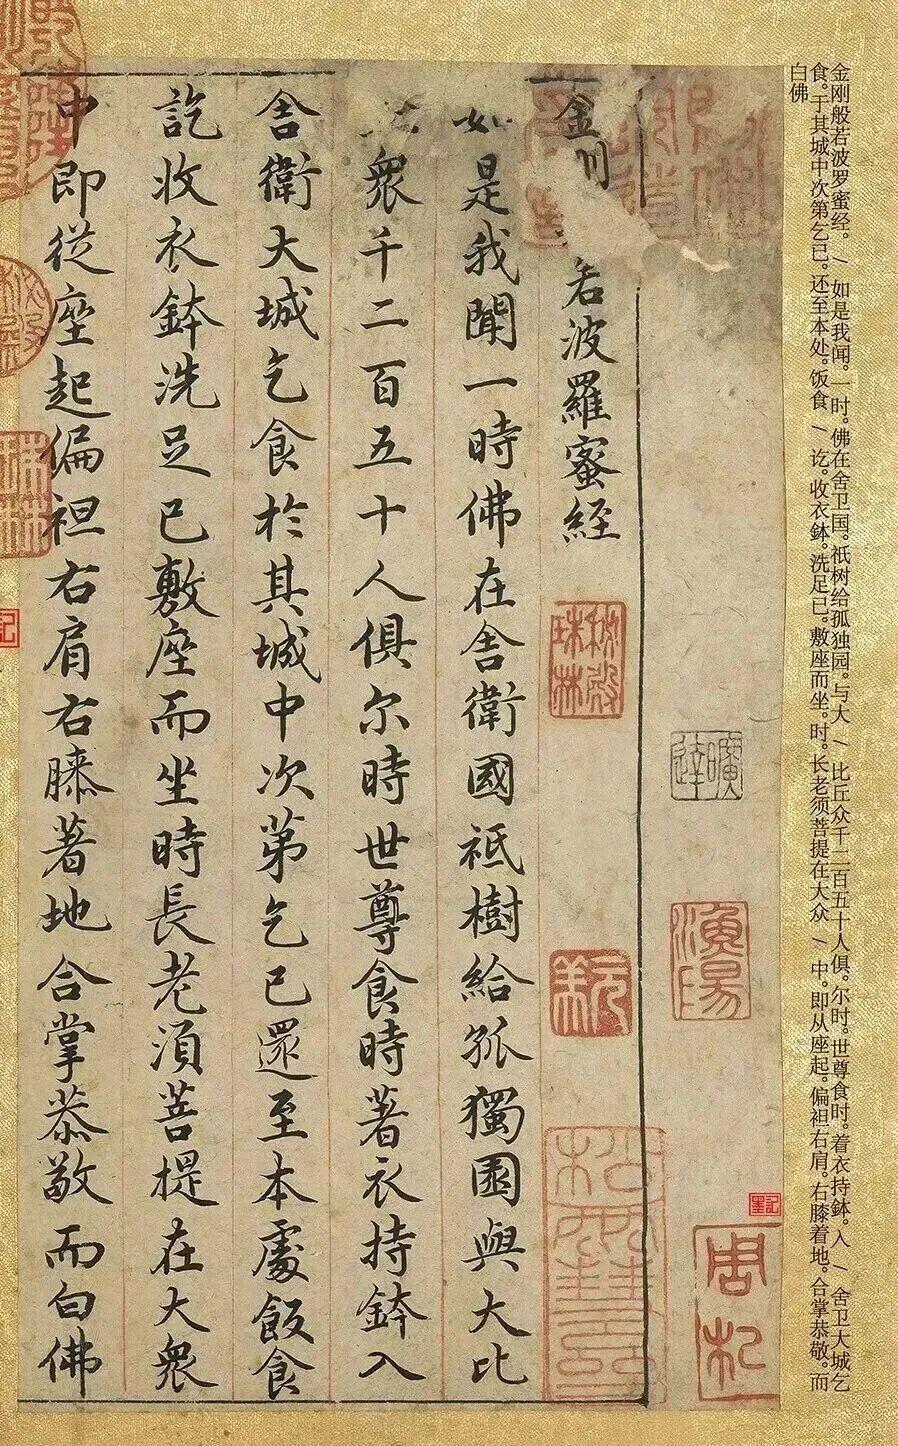 金刚般若波罗蜜经。/ 如是我闻。一时。佛在舍卫国。祇树给孤独园。与大 / 比丘众千二百五十人俱。尔时。世尊食时。着衣持鉢。入 / 舍卫大城乞
食。于其城中次第乞已。还至本处。饭食 / 讫。收衣鉢。洗足已。敷座而坐。时。长老须菩提在大众 / 中。即从座起。偏袒右肩。右膝着地。合掌恭敬。而
白佛
曠達
漁陽
金 若波羅蜜經
秘殿珠林
如是我聞一時佛在舍衛國祇樹給孤獨園與大比
衆千二百五十人俱尔時世尊食時著衣持鉢入
舍衛大城乞食於其城中次第乞已還至本處飯食
訖收衣鉢洗足已敷座而坐時長老須菩提在大衆
中即從座起偏袒右肩右膝著地合掌恭敬而白佛